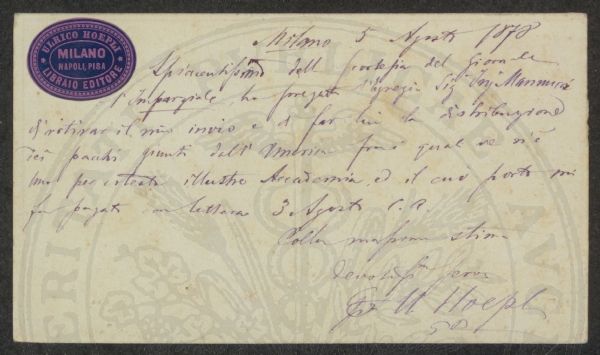 ULRICO HOEPLI
MILANO
NAPOLI, PISA
LIBRAIO EDITORE
Milano 5 Agosto 1878
Spiacentissimo dell del giornale
l'Imparziale, ho pregato l'egregio Sig. Ing. Mannucci
di ritirare il mio invio e di far lui la distribuzione
dei pacchi giunti dall' America fra i quali ve n'è
uno per cotesta illustre Accademia, ed il cui porto mi
fu pagato con lettera 3 Agosto c.a.
Colla massima stima
devotissmo servo
U. Hoepli